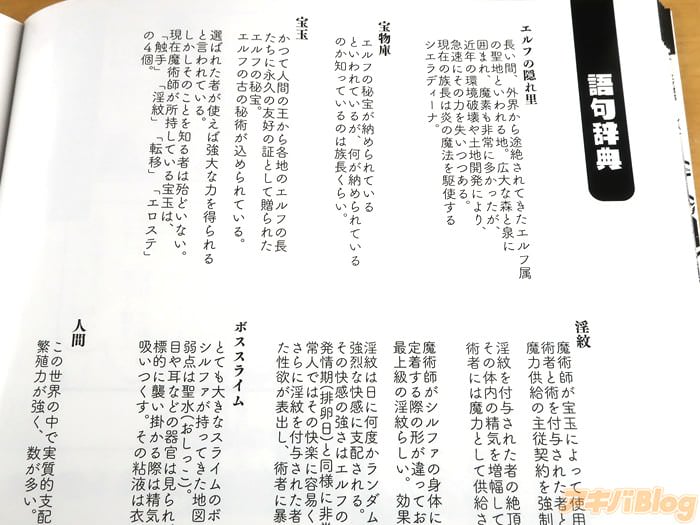 語句辞典
エルフの隠れ里
長い間、外界から途絶されてきたエルフ属
の聖地といわれる地。広大な森と泉に
囲まれ、魔素も非常に多かったが、
近年の環境破壊や土地開発により、
急速にその力を失いつつある。
現在の族長は炎の魔法を駆使する
シエラディーナ。
宝物庫
エルフの秘宝が納められている
といわれているが、何が納められている
のか知っているのは族長くらい。
宝玉
かつて人間の王から各地のエルフの長
たちに永久の友好の証として贈られた
エルフの秘宝。
エルフの古の秘術が込められている。
選ばれた者が使えば強大な力を得られる
と言われている。
しかしそのことを知る者は殆どいない。
現在魔術師が所持している宝玉は、
「触手」「淫紋」「転移」「エロステ」
の4個。
淫紋
魔術師が宝玉によって使用
術者と術を付与された者と
魔力供給の主従契約を強制
淫紋を付与された者の絶頂
その体内の精気を増幅して
術者には魔力として供給さ
魔術師がシルファの身体に
定着する際の形が違ってお
最上級の淫紋らしい。効果
淫紋は日に何度かランダム
強烈な快感に支配される。
その快感の強さはエルフの
発情期(排卵日)と同様に非常
常人ではその快楽に容易く
さらに淫紋を付与された者
た性欲が表出し、術者に暴
ボススライム
とても大きなスライムのボ
シルファが持ってきた地図
弱点は聖水(おしっこ)。
目や耳などの器官は見られ
標的に襲い掛かる際は精気
吸いつくす。その粘液は衣
人間
この世界の中で実質的支配
繁殖力が強く、数が多い。
アキバBlog